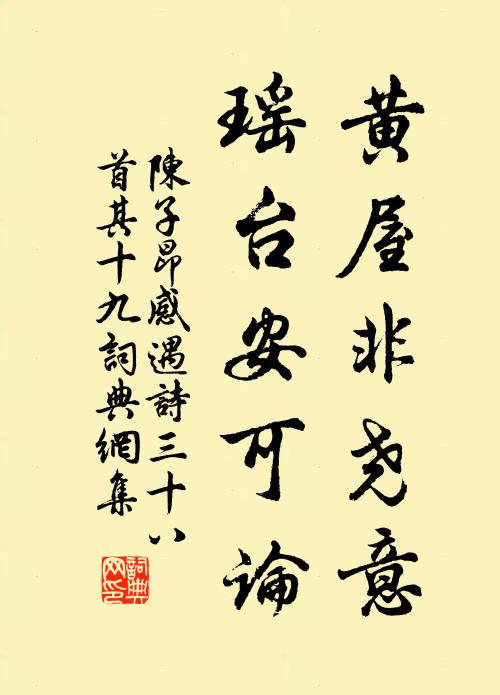 黄屋非尧意
瑶台安可論
陳子昂感遇詩三十八
首其十九詞典網集
詞典
网印